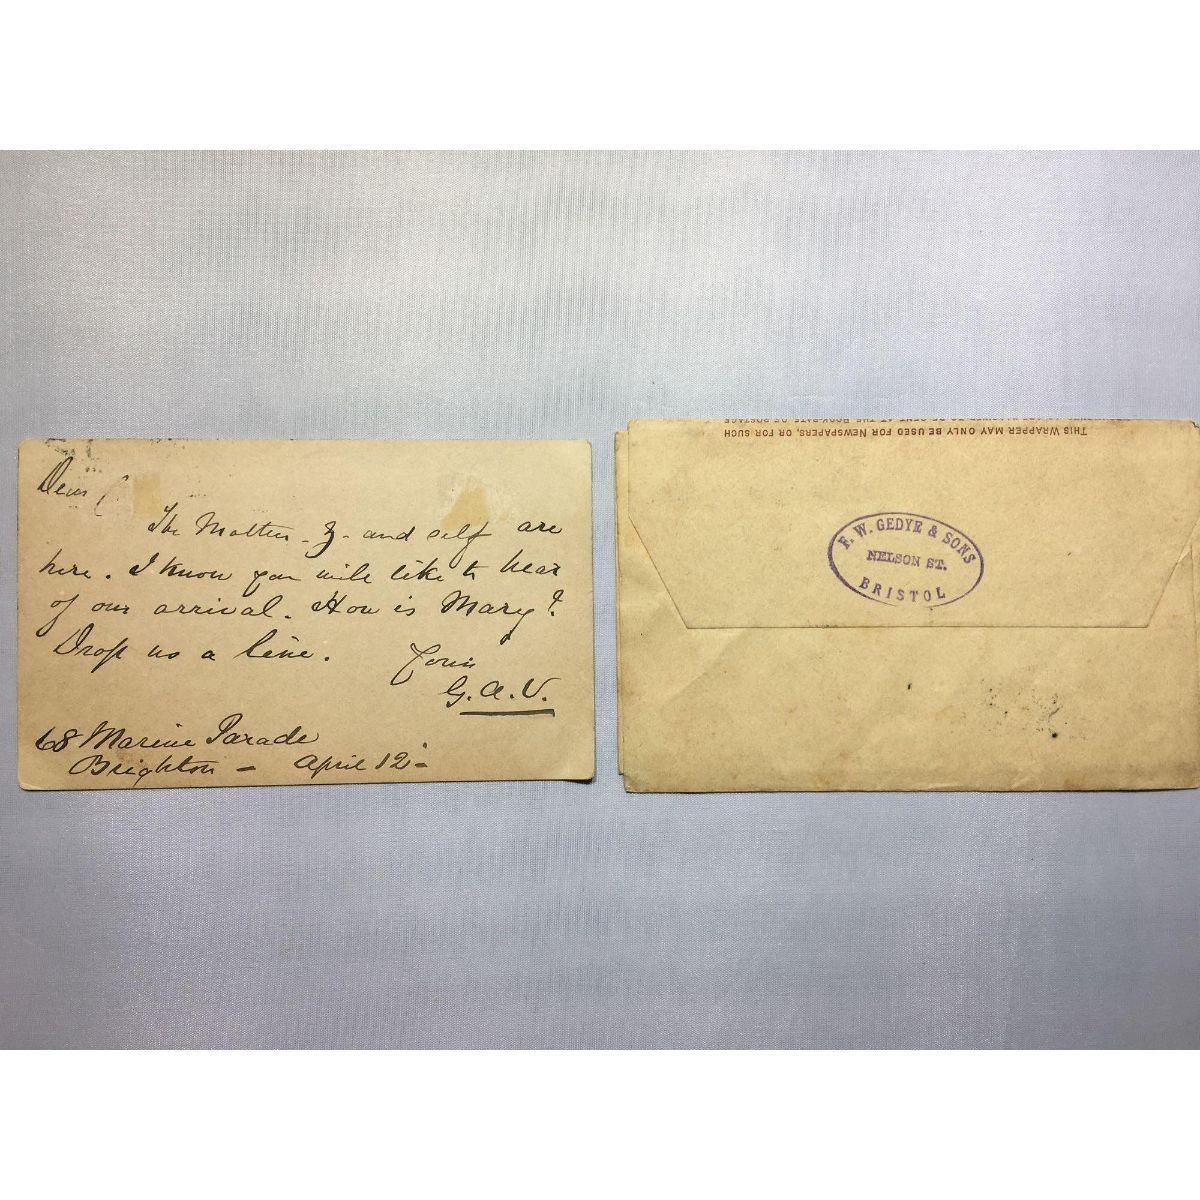 Dear
The Mater - Z - and self are
here. I know you will like to hear
of our arrival. How is Mary?
Drop us a line. Yours
G.A.V.
68 Marine Parade
Brighton - April 12 -
THIS WRAPPER MAY ONLY BE USED FOR NEWSPAPERS, OR FOR SUCH
TO BE SENT AT THE BOOK-RATE OF POSTAGE
F. W. GEDYE & SONS
NELSON ST.
BRISTOL